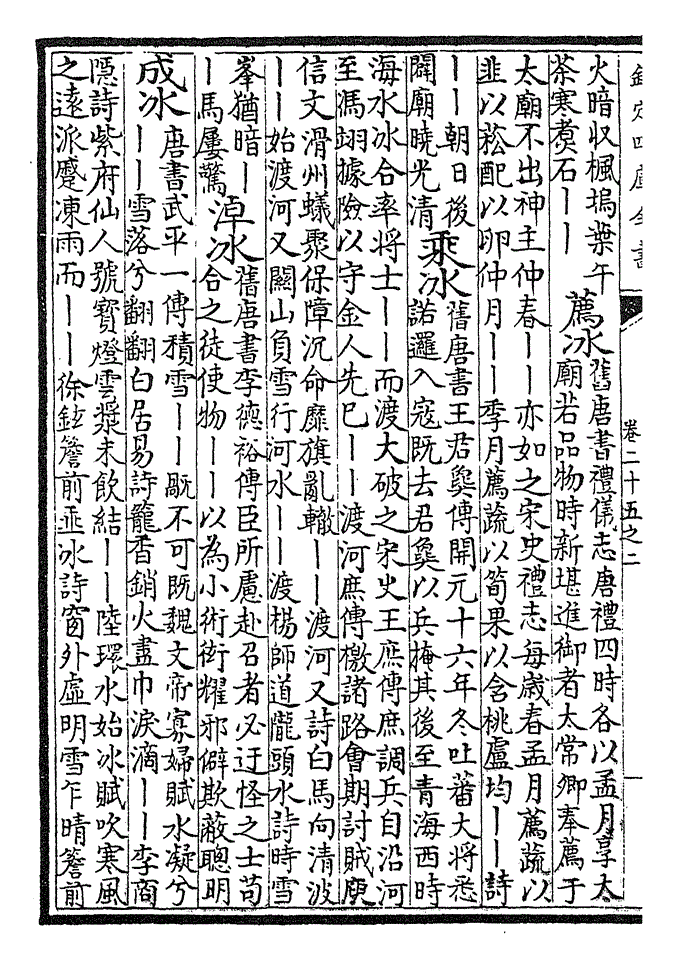 欽定四庫全書
卷二十五之二
火暗収楓塢葉午
茶寒煑石丨丨
薦冰
舊唐書禮儀志唐禮四時各以孟月享太
廟若品物時新堪進御者太常卿奉薦于
太廟不出神主仲春丨丨亦如之宋史禮志每歲春孟月薦蔬以
韭以菘配以卵仲月丨丨季月薦蔬以筍果以含桃盧均丨丨詩
丨丨朝日後
闢廟曉光清
乘冰
舊唐書王君㚟傳開元十六年冬吐蕃大將悉
諾邏入寇既去君㚟以兵掩其後至青海西時
海水冰合率將士丨丨而渡大破之宋史王庶傳庶調兵自沿河
至馮翊據險以守金人先已丨丨渡河庶傳檄諸路會期討賊庾
信文滑州蟻聚保障沉命靡旗亂轍丨丨渡河又詩白馬向清波
丨丨始渡河又關山負雪行河水丨丨渡楊師道隴頭水詩時雪
峯猶暗丨
丨馬屢驚
淖冰
舊唐書李德裕傳臣所慮赴召者必迂怪之士苟
合之徒使物丨丨以為小術衒耀邪僻欺蔽聰明
成冰
唐書武平一傳積雪丨丨不可既魏文帝寡婦賦水凝兮
丨丨雪落兮翻翻白居易詩籠香銷火盡巾淚滴丨丨李商
隱詩紫府仙人號寳燈雲漿未飲結丨丨陸環水始冰賦吹寒風
之遠派蹙凍雨而丨丨徐鉉簷前垂冰詩窗外虛明雪乍晴簷前